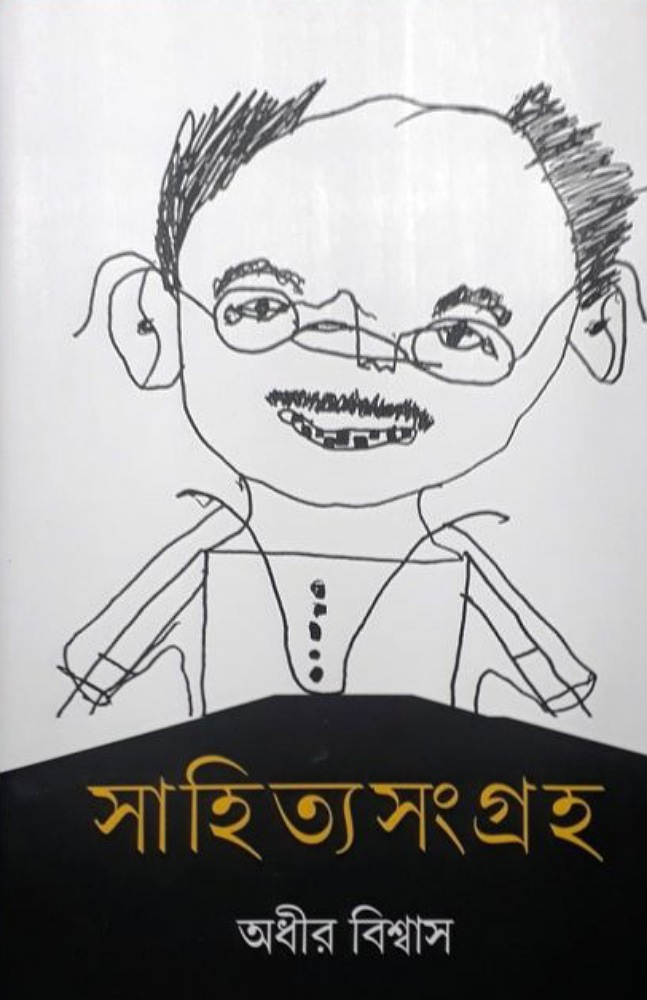 সাহিত্যসংগ্রহ
অধীর বিশ্বাস